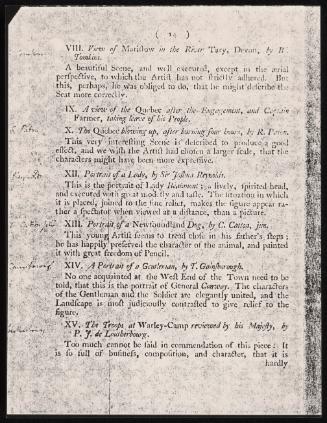 ( 14 )
VIII. View of Matislow in the River Tavy, Devon, by B
Tomkins.
A beautiful Scene, and well executed, except in the aerial
perspective, to which the Artist has not strictly adhered. But
this, perhaps, he was obliged to do, that he might describe the
Seat more correctly.
IX. A view of the Quebec after the Engagement, and Captain
Farmer, taking leave of his People.
X. The Quebec blowing up, after burning four hours, by R. Paton.
This very interesting Scene is described to produce a good
effect, and we wish the Artist had chosen a larger scale, that the
characters might have been more expressive.
XII. Portrait of a Lady, by Sir Joshua Reynolds.
This is the portrait of Lady Beaumont; a lively, spirited head,
and executed with great modesty and taste. The situation in which
it is placed, joined to the fine relief, makes the figure appear ra-
ther a spectator when viewed at a distance, than a picture.
XIII. Portrait of a Newfoundland Dog, by C. Catton, jun.
This young Artist seems to tread close in his father's steps;
he has happily preserved the character of the animal, and painted
it with great freedom of Pencil.
XIV. A Portrait of a Gentleman, by T. Gainsborough.
No one acquainted at the West End of the Town need to be
told, that this is the portrait of General Conway. The characters
of the Gentleman and the Soldier are elegantly united, and the
Landscape is most judiciously contrasted to give relief to the
figure.
XV. The Troops at Warley-Camp reviewed by his Majesty, by
P. J. de Loutherbourg.
Too much cannot be said in commendation of this piece: It
is so full of business, composition, and character, that it is
hardly